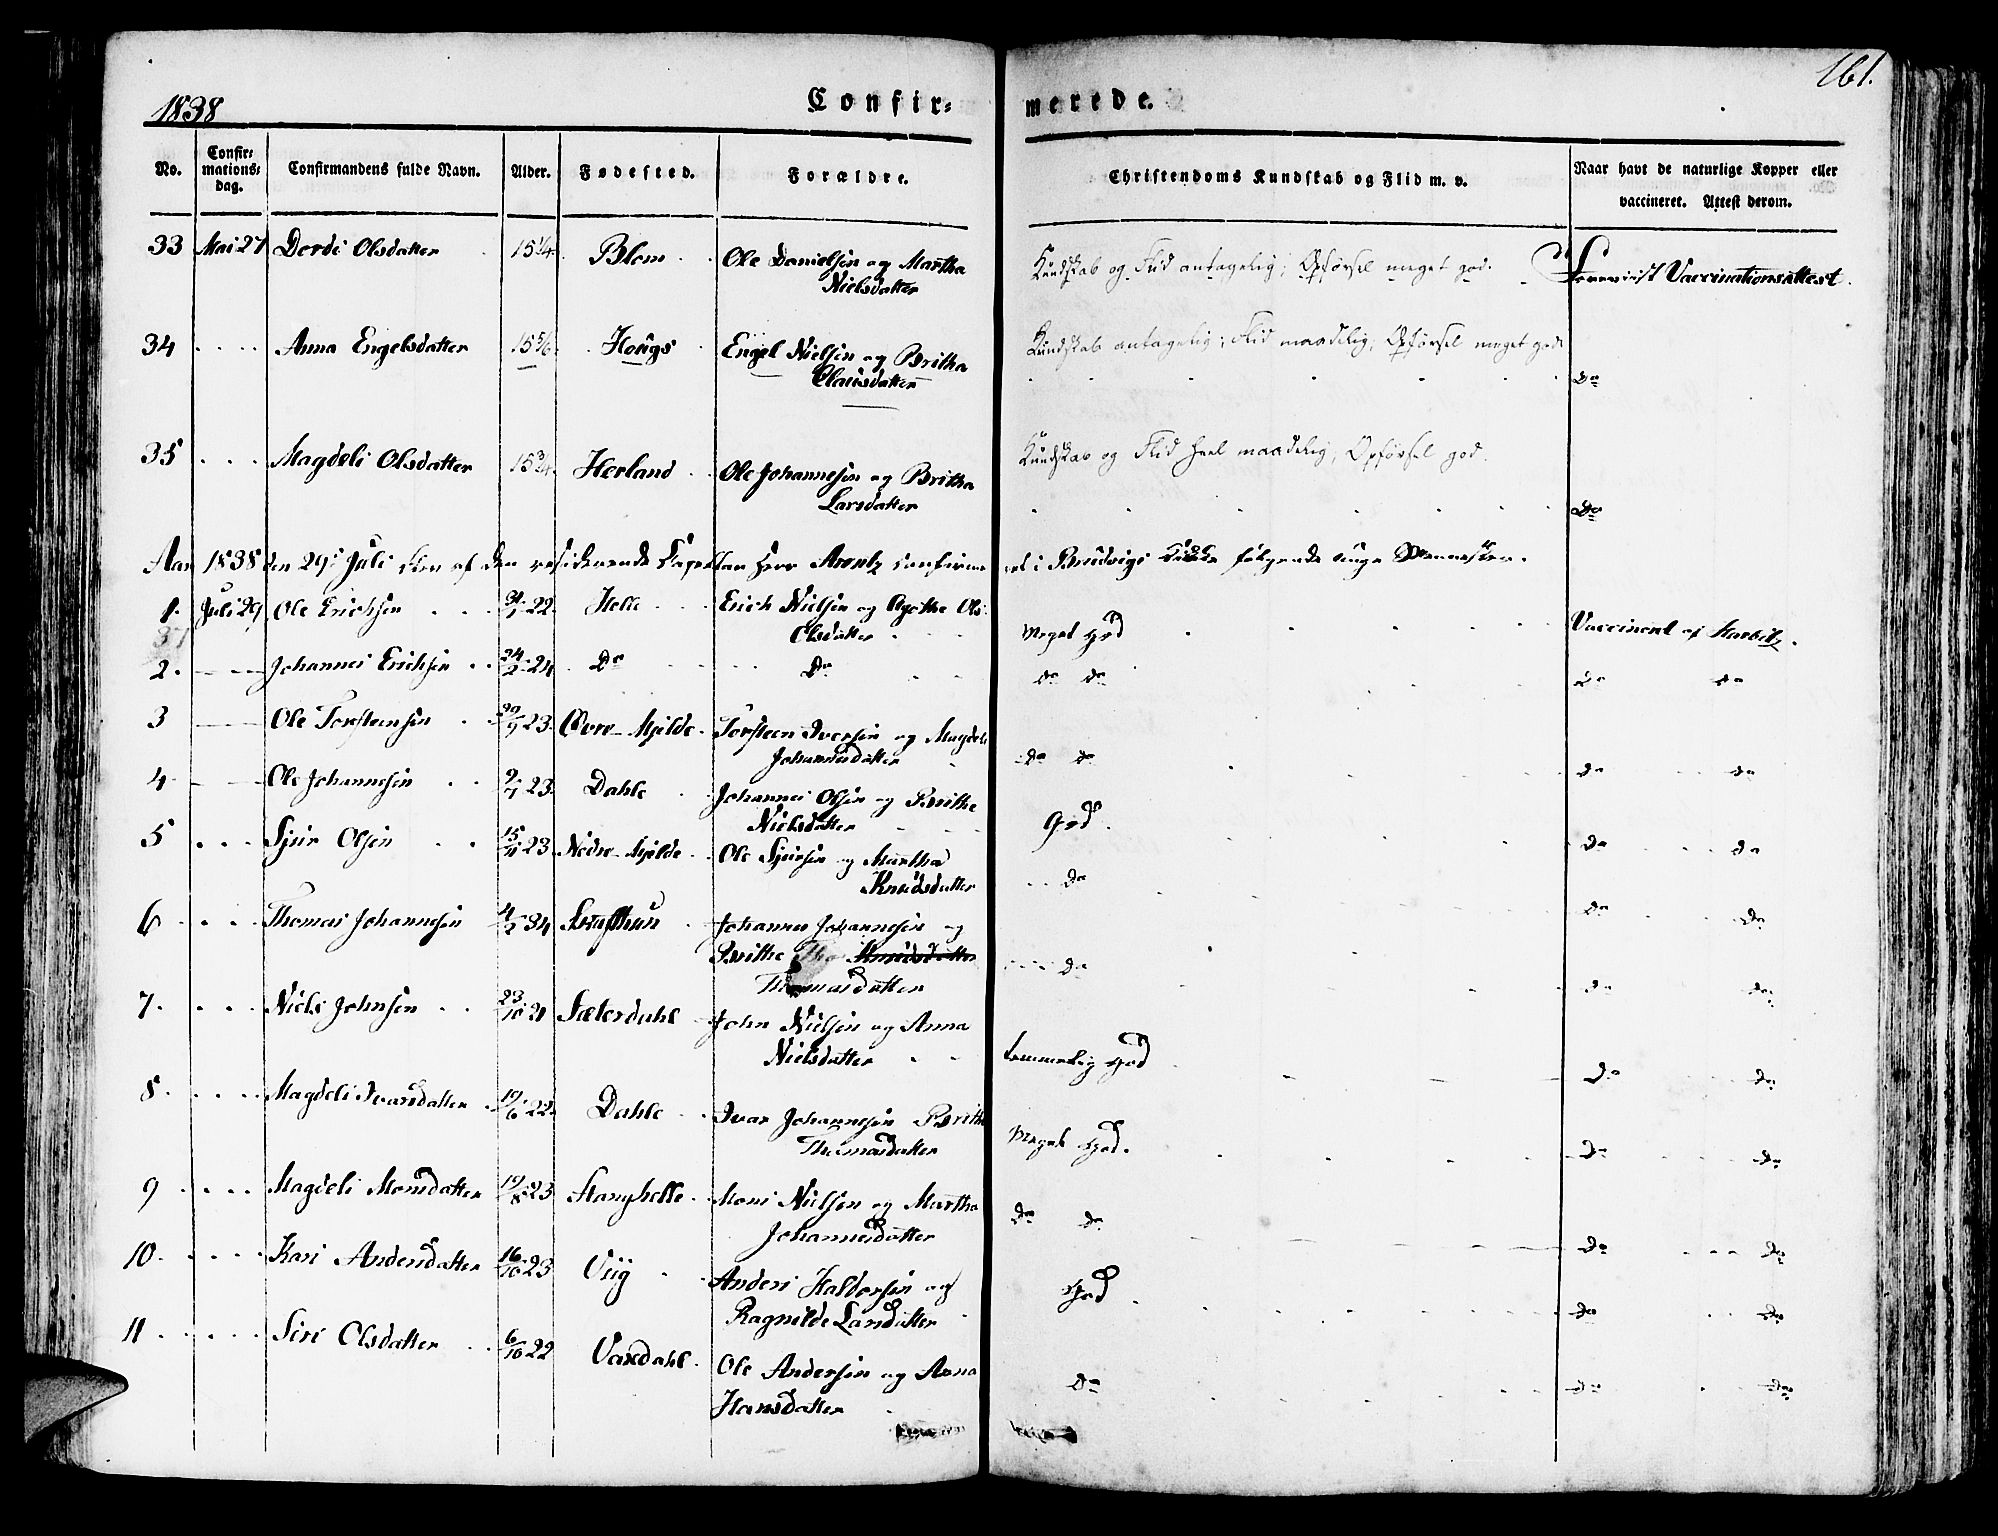 161.
1838
Confir=
merede.
No.
Confir=
mations=
dag.
Confirmandens fulde Navn.
Alder.
Fødested.
Forældre.
Christendoms Kundskab og Flid m. v.
Naar havt de naturlige Kopper eller
vaccineret. Attest derom.
33 Mai 27 Dordi Olsdatter 15 1/4 Blom Ole Danielsen og Martha
Nielsdatter
Kundskab og Flid antagelig; Opførsel meget god.
Foreviist Vaccinationsattest.
34 Anna Engelsdatter 15 5/6 Hougs Engel Nielsen og Britha
Clausdatter
Kundskab antagelig; Flid maadelig; Opførsel meget god
Do
35 Magdeli Olsdatter 15 3/4 Herland Ole Johannesen og Britha
Larsdatter
Kundskab og Flid heel maadelig, Opførsel god.
Do
Aar 1838 den 29de Juli blev af den residerende Capellan Herr Arentz confirmeret i Bruvigs Kirke følgende unge Mennesker.
1. Juli 29 Ole Erichsen 22 Helle Erich Nielsen og Agathe Ols
Olsdatter Meget God Vaccineret af
37
2. Johannes Erichsen 24/2 24 Do Do do do Do do
3 Ole Torsteinsen 23 Øvre Mjelde Torsteen Iversen og Magdeli
Johannesdatter do do do do
4 Ole Johannesen 23 Dahle Johannes Olsen og Brithe
Nielsdatter God. do do
5 Sjur Olsen 15/11 23 Nedre Mjelde Ole Sjursen og Martha
Knudsdatter do do do
6 Thomas Johannesen Johannes Johannesen og
Brithe Tho Knudsdatter
Thomasdatter do do do
7. Niels Johnsen 23/10 21 Sæterdahl John Nielsen og Anna
Nielsdatter temmelig god do do
8 Magdeli Ivarsdatter 19/6 22 Dahle Ivar Johannesen Brithe
Thomasdatter Meget God. do do
9 Magdeli Monsdatter 19/8 23 Stanghelle Mons Nielsen og Martha
Johannesdatter do do do do
10 Kari Andersdatter 16/10 23 Viig Anders Haldorsen og
Ragnilde Larsdatter God do do
11 Siri Olsdatter 6/10 22 Vaxdahl Ole Andersen og Anna
Hansdatter Do do do